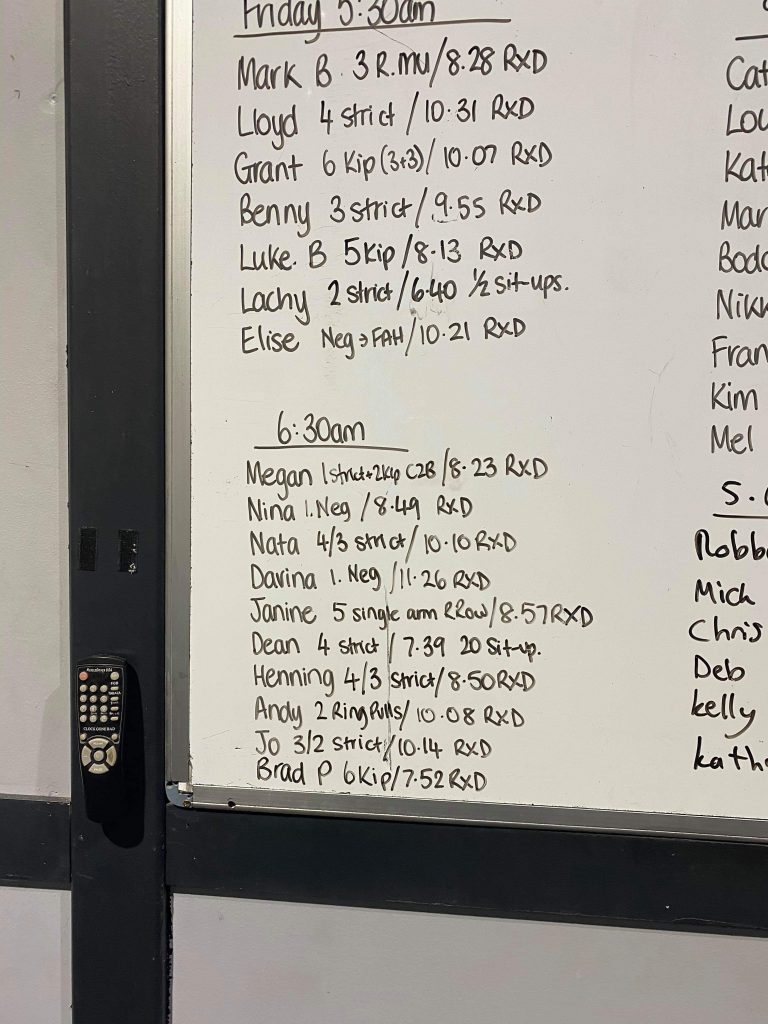 Friday 5:30am
Mark B 3 R.MU/8.28 RXD
Lloyd 4 strict/10.31 RXD
Grant 6 Kip (3+3)/10.07 RXD
Benny 3 strict/9.55 RXD
Luke. B 5 Kip/8.13 RXD
Lachy 2 strict/6.40 1/2 sit-ups.
Elise Neg→FAH/10.21 RXD
6:30am
Megan 1 strict+2kip C2B/8.23 RXD
Nina 1. Neg/8.49 RXD
Nata 4/3 strict/10.10 RXD
Darina 1. Neg/11.26 RXD
Janine 5 single arm RRow/8.57 RXD
Dean 4 strict/7.39 20 Sit-up.
Henning 4/3 strict/8.50 RXD
Andy 2 Ring Pulls/10.08 RXD
Jo 3/2 strict/10.14 RXD
Brad P 6 Kip/7.52 RXD
Cat
Lou
Kat
Mar
Bodo
Nikk
Fran
Kim
Mel
5.
Robb
Mich
Chris
Deb
kelly
kath